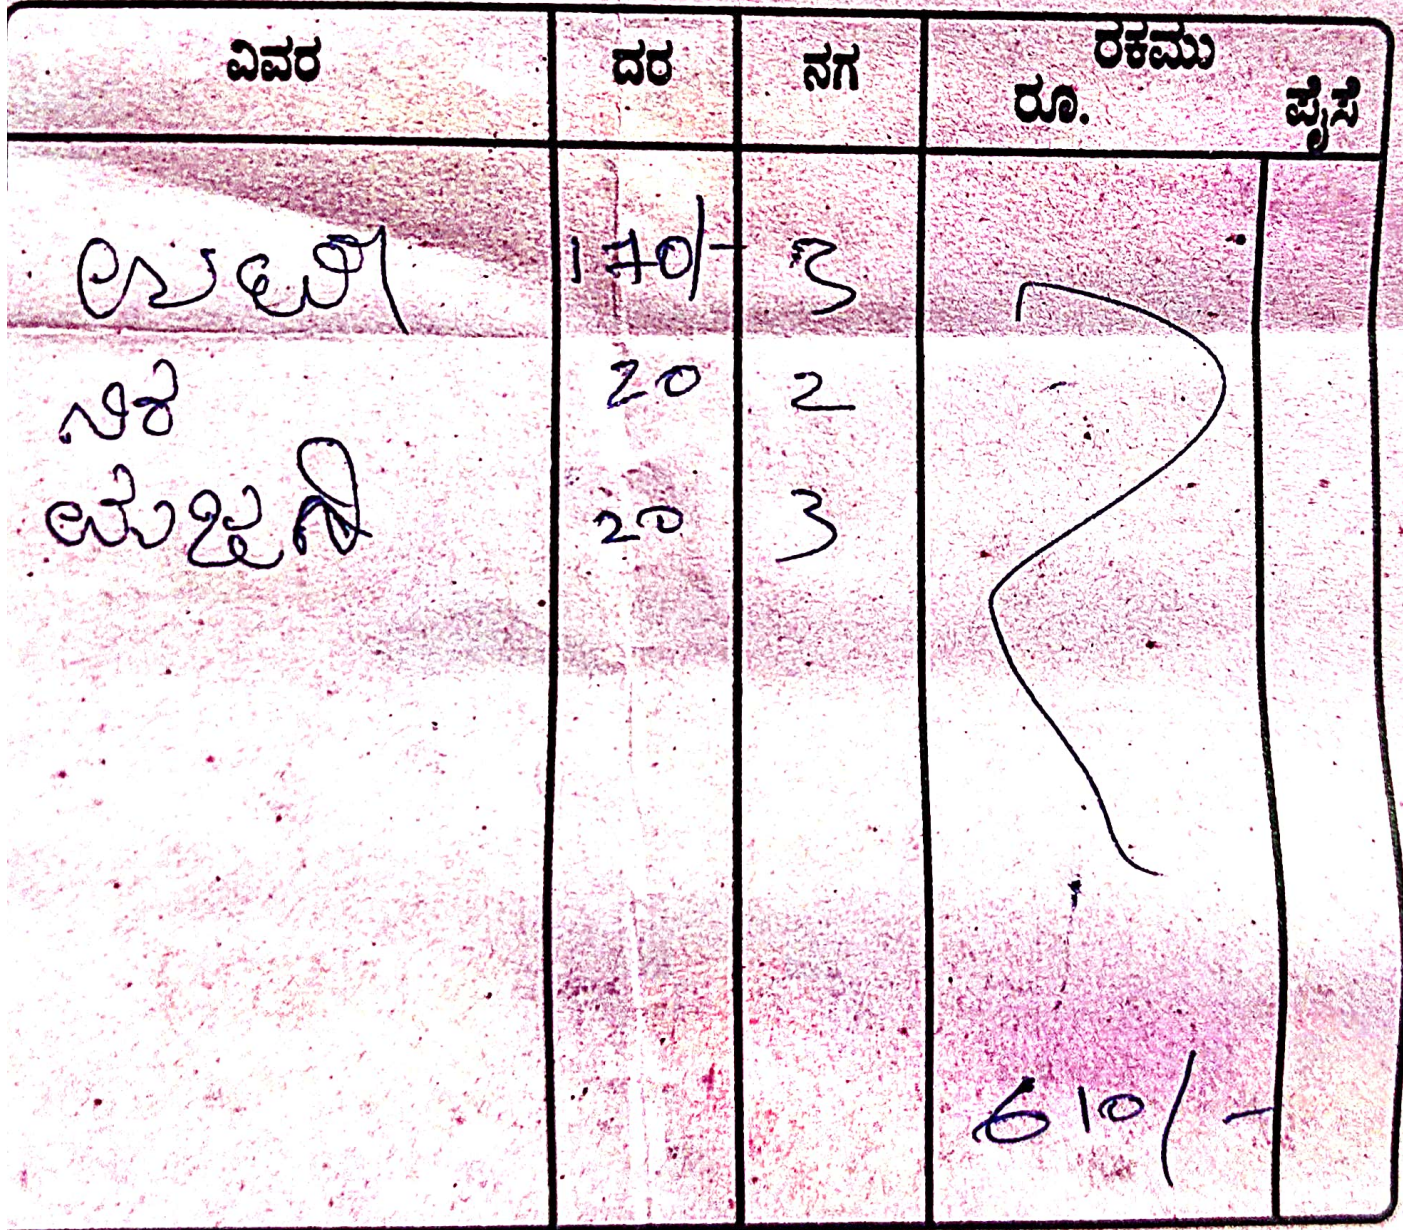 ವಿವರ ದರ ನಗ ರಕಮು
ರೂ. ಪೈಸೆ
ಊಟ 170/- 3
ನೀರ 20 2
ಮಜ್ಜಿಗೆ 20 3
610/-